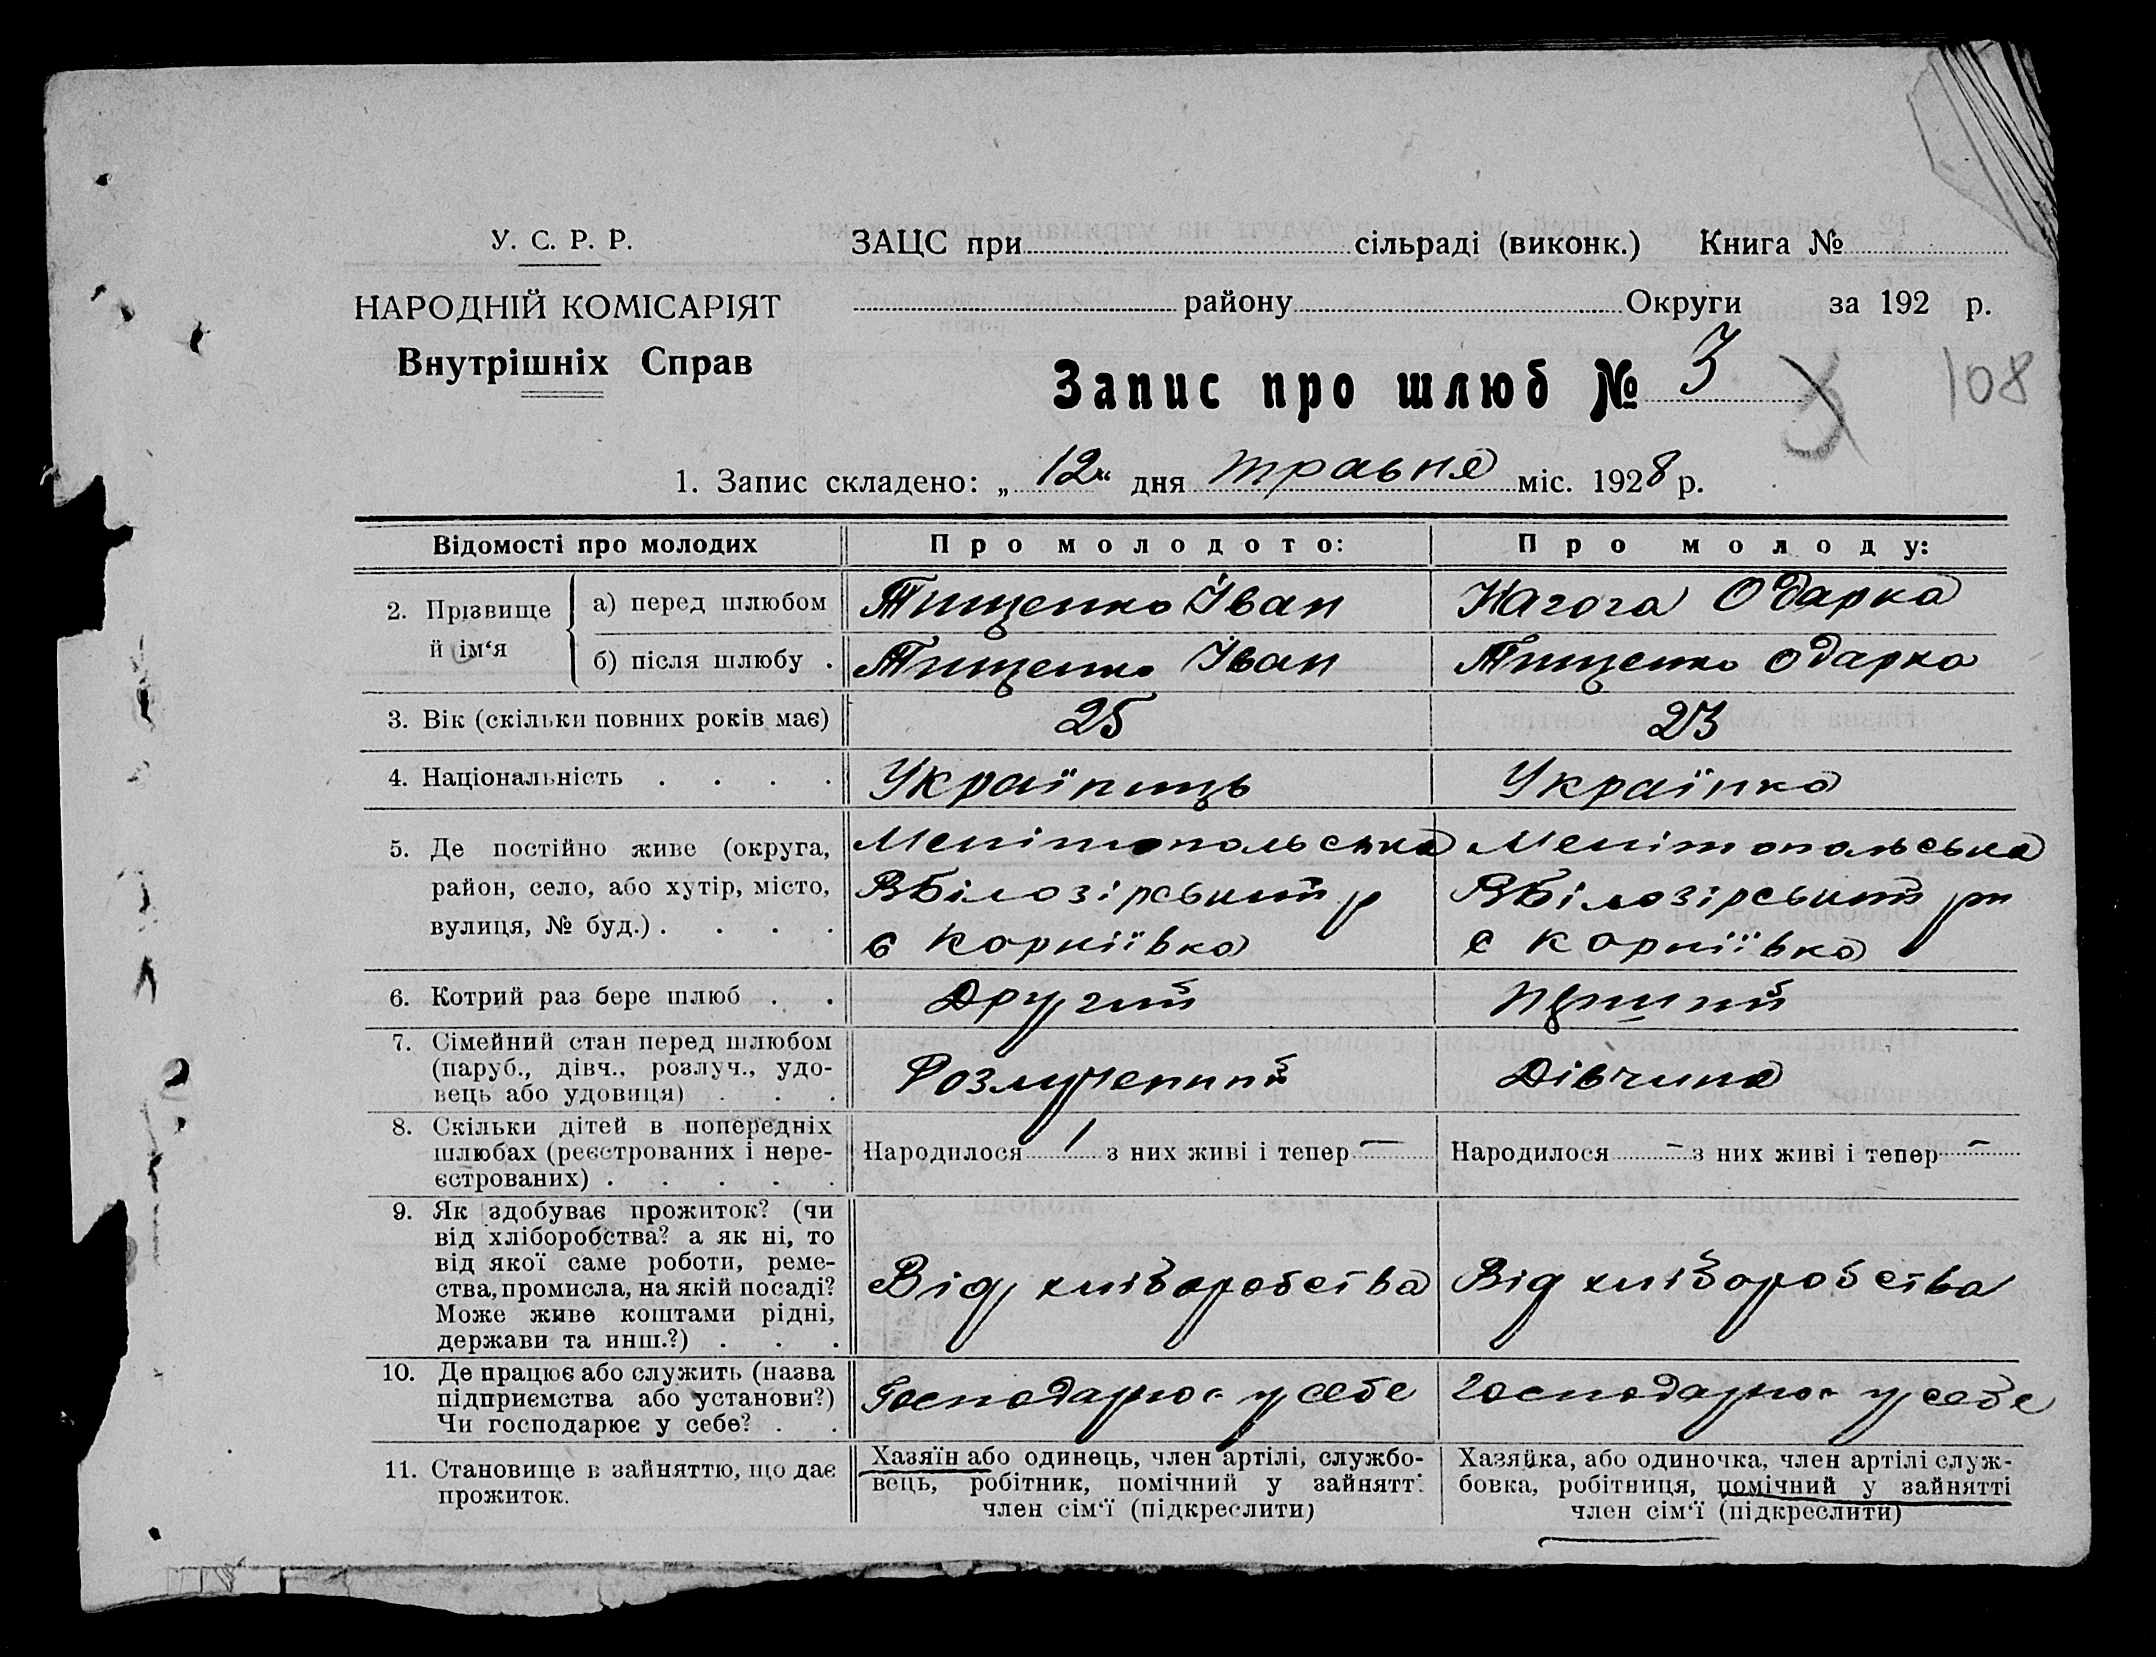 У. С. Р. Р.
НАРОДНІЙ КОМІСАРІЯТ
Внутрішніх Справ
ЗАЦС при сільраді (виконк.) Книга №
району Округи за 192 р.
Запис про шлюб № 3
108
1. Запис складено: „ 12 “ дня травня міс. 1928 р.
Відомості про молодих Про молодого: Про молоду:
2. Прізвище й ім‘я
а) перед шлюбом Тищенко Іван Нагога Одарка
б) після шлюбу . Тищенко Іван Тищенко Одарка
3. Вік (скільки повних років має) 25 23
4. Національність . . . . Україниць Українка
5. Де постійно живе (округа,
район, село, або хутір, місто,
вулиця, № буд.) . . . .
Мелітопольська
ВБілозірський р
с Корніївка
Мелітопольська
ВБілозірський рн
с Корніївка
6. Котрий раз бере шлюб . . Другий Перший
7. Сімейний стан перед шлюбом
(паруб., дівч., розлуч., удо-
вець або удовиця) . . .
Розлучений Дівчина
8. Скільки дітей в попередніх
шлюбах (реєстрованих і нере-
єстрованих) . . . . .
Народилося 1 з них живі і тепер — Народилося – з них живі і тепер –
9. Як здобуває прожиток? (чи
від хліборобства? а як ні, то
від якої саме роботи, реме-
ства, промисла, на якій посаді?
Може живе коштами рідні,
держави та инш.?) . . .
Від хліборобства Від хліборобства
10. Де працює або служить (назва
підприємства або установи?)
Чи господарює у себе? . .
Господарює у себе Господарює у себе
11. Становище в зайняттю, що дає
прожиток.
Хазяїн або одинець, член артілі, службо-
вець, робітник, помічний у зайнятті
член сім‘ї (підкреслити)
Хазяйка, або одиночка, член артілі служ-
бовка, робітниця, помічний у зайнятті
член сім‘ї (підкреслити)